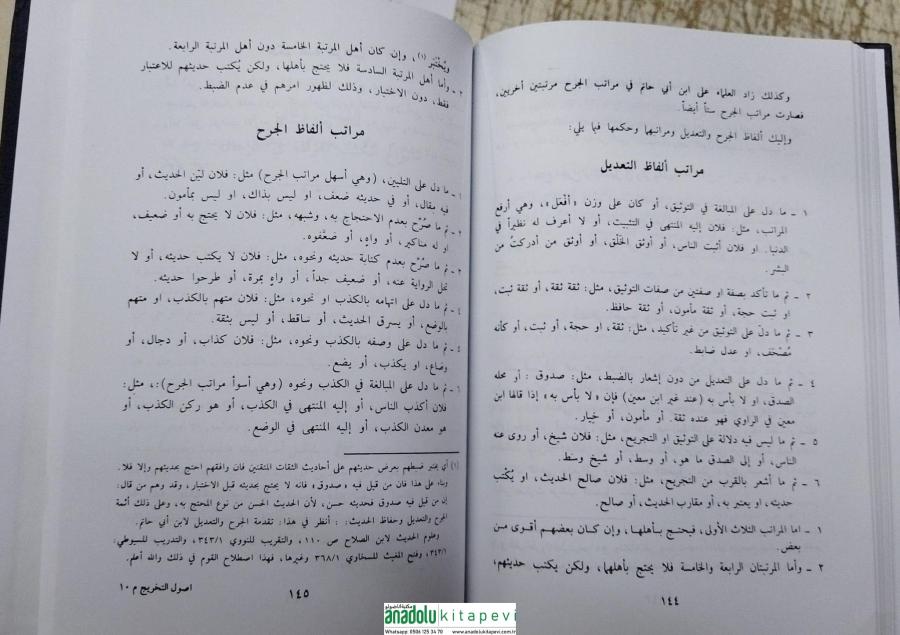 وكذلك زاد العلماء على ابن أبي حاتم في مراتب الجرح مرتبتين أخريين،
فصارت مراتب الجرح ستاً أيضاً.
وإليك ألفاظ الجرح والتعديل ومراتبها وحكمها فيما يلي:
مراتب ألفاظ التعديل
١ ـ ما دل على المبالغة في التوثيق، أو كان على وزن «أفْعَل»، وهي أرفع
المراتب، مثل: فلان إليه المنتهى في التثبيت، أو لا أعرف له نظيراً في
الدنيا. او فلان أثبت الناس، أو أوثق الخَلْق، أو أوثق من أدركتُ من
البشر.
٢ ـ ثم ما تأكد بصفة او صفتين من صفات التوثيق، مثل: ثقة ثقة، أو ثقة ثبت،
او ثبت حجة، أو ثقة مأمون، أو ثقة حافظ.
٣ ـ ثم ما دلّ على التوثيق من غير تأكيد، مثل: ثقة، او حجة، أو ثبت، أو كأنه
مُصْحَف، او عدل ضابط.
٤ ـ ثم ما دل على التعديل من دون إشعار بالضبط، مثل: صدوق : أو محله
الصدق، او لا بأس به (عند غير ابن معين) فإن «لا بأس به» إذا قالها ابن
معين في الراوي فهو عنده ثقة. أو مأمون، أو خِيار.
٥ ـ ثم ما ليس فيه دلالة على التوثيق او التجريح، مثل: فلان شيخ، أو روى عنه
الناس، أو إلى الصدق ما هو، أو وسط، أو شيخ وسط.
٦ ـ ثم ما أشعر بالقرب من التجريح، مثل: فلان صالح الحديث، او يُكْتب
حديثه، او يعتبر به، أو مقارب الحديث، أو صالح.
١ ـ اما المراتب الثلاث الأولى، فيحتج بأهلها، وإن كان بعضهم أقوى من
بعض.
٢ ـ وأما المرتبتان الرابعة والخامسة فلا يحتج بأهلهما، ولكن يكتب حديثهم،
١٤٤
ويُخْتَبَر (١)، وإن كان أهل المرتبة الخامسة دون أهل المرتبة الرابعة.
٣ ـ وأما أهل المرتبة السادسة فلا يحتج بأهلها، ولكن يُكتب حديثهم للاعتبار
فقط، دون الاختبار، وذلك لظهور امرهم في عدم الضبط.
مراتب ألفاظ الجرح
١ ـ ما دل على التليين، (وهي أسهل مراتب الجرح) مثل: فلان ليّن الحديث، أو
فيه مقال، أو في حديثه ضعف، او ليس بذاك، او ليس بمأمون.
٢ ـ ثم ما صُرّح بعدم الاحتجاج به، وشبهه، مثل: فلان لا يحتج به أو ضعيف،
او له مناكير، أو واهٍ، أو ضعّفوه.
٣ ـ ثم ما صُرّح بعدم كتابة حديثه ونحوه، مثل: فلان لا يكتب حديثه، أو لا
تحل الرواية عنه، أو ضعيف جداً، أو واهٍ بمرة، أو طرحوا حديثه.
٤ ـ ثم ما دل على اتهامه بالكذب او نحوه، مثل: فلان متهم بالكذب، او متهم
بالوضع، أو يسرق الحديث، أو ساقط، أو ليس بثقة.
٤ ـ ثم ما دل على وصفه بالكذب ونحوه، مثل: فلان كذاب، أو دجال، أو
وضاع، او يكذب، أو يضع.
٦ ـ ثم ما دل على المبالغة في الكذب ونحوه (وهي أسوأ مراتب الجرح):، مثل:
فلان أكذب الناس، أو إليه المنتهى في الكذب، أو هو ركن الكذب، أو
هو معدن الكذب، أو إليه المنتهى في الوضع.
(١) أي يختبر ضبطهم بعرض حديثهم على أحاديث الثقات المتقنين فان وافقهم احتج بحديثهم وإلا فلا.
وبناء على هذا فان من قيل فيه «صدوق» فانه لا يحتج بحديثه قبل الاختبار، وقد وهم من قال:
إن من قيل فيه صدوق فحديثه حسن، لأن الحديث الحسن من نوع المحتج به، وعلى ذلك أئمة
الجرح والتعديل وحفاظ الحديث: : أنظر في هذا: تقدمة الجرح والتعديل لابن أبي حاتم.
وعلوم الحديث لابن الصلاح ص ١١٠، والتقريب للنووي ٣٤٣/١، والتدريب للسيوطي:
٣٤٣/١، وفتح المغيث للسخاوي ٣٦٨/١ وغيرها، فهذا اصطلاح القوم في ذلك والله أعلم.
١٤٥
اصول التخريج م ١٠
مكتبة الناضولو
anadolu kitapevi
Whatsapp 0506 125 34 70 www.anadolukitapevi.com.tr